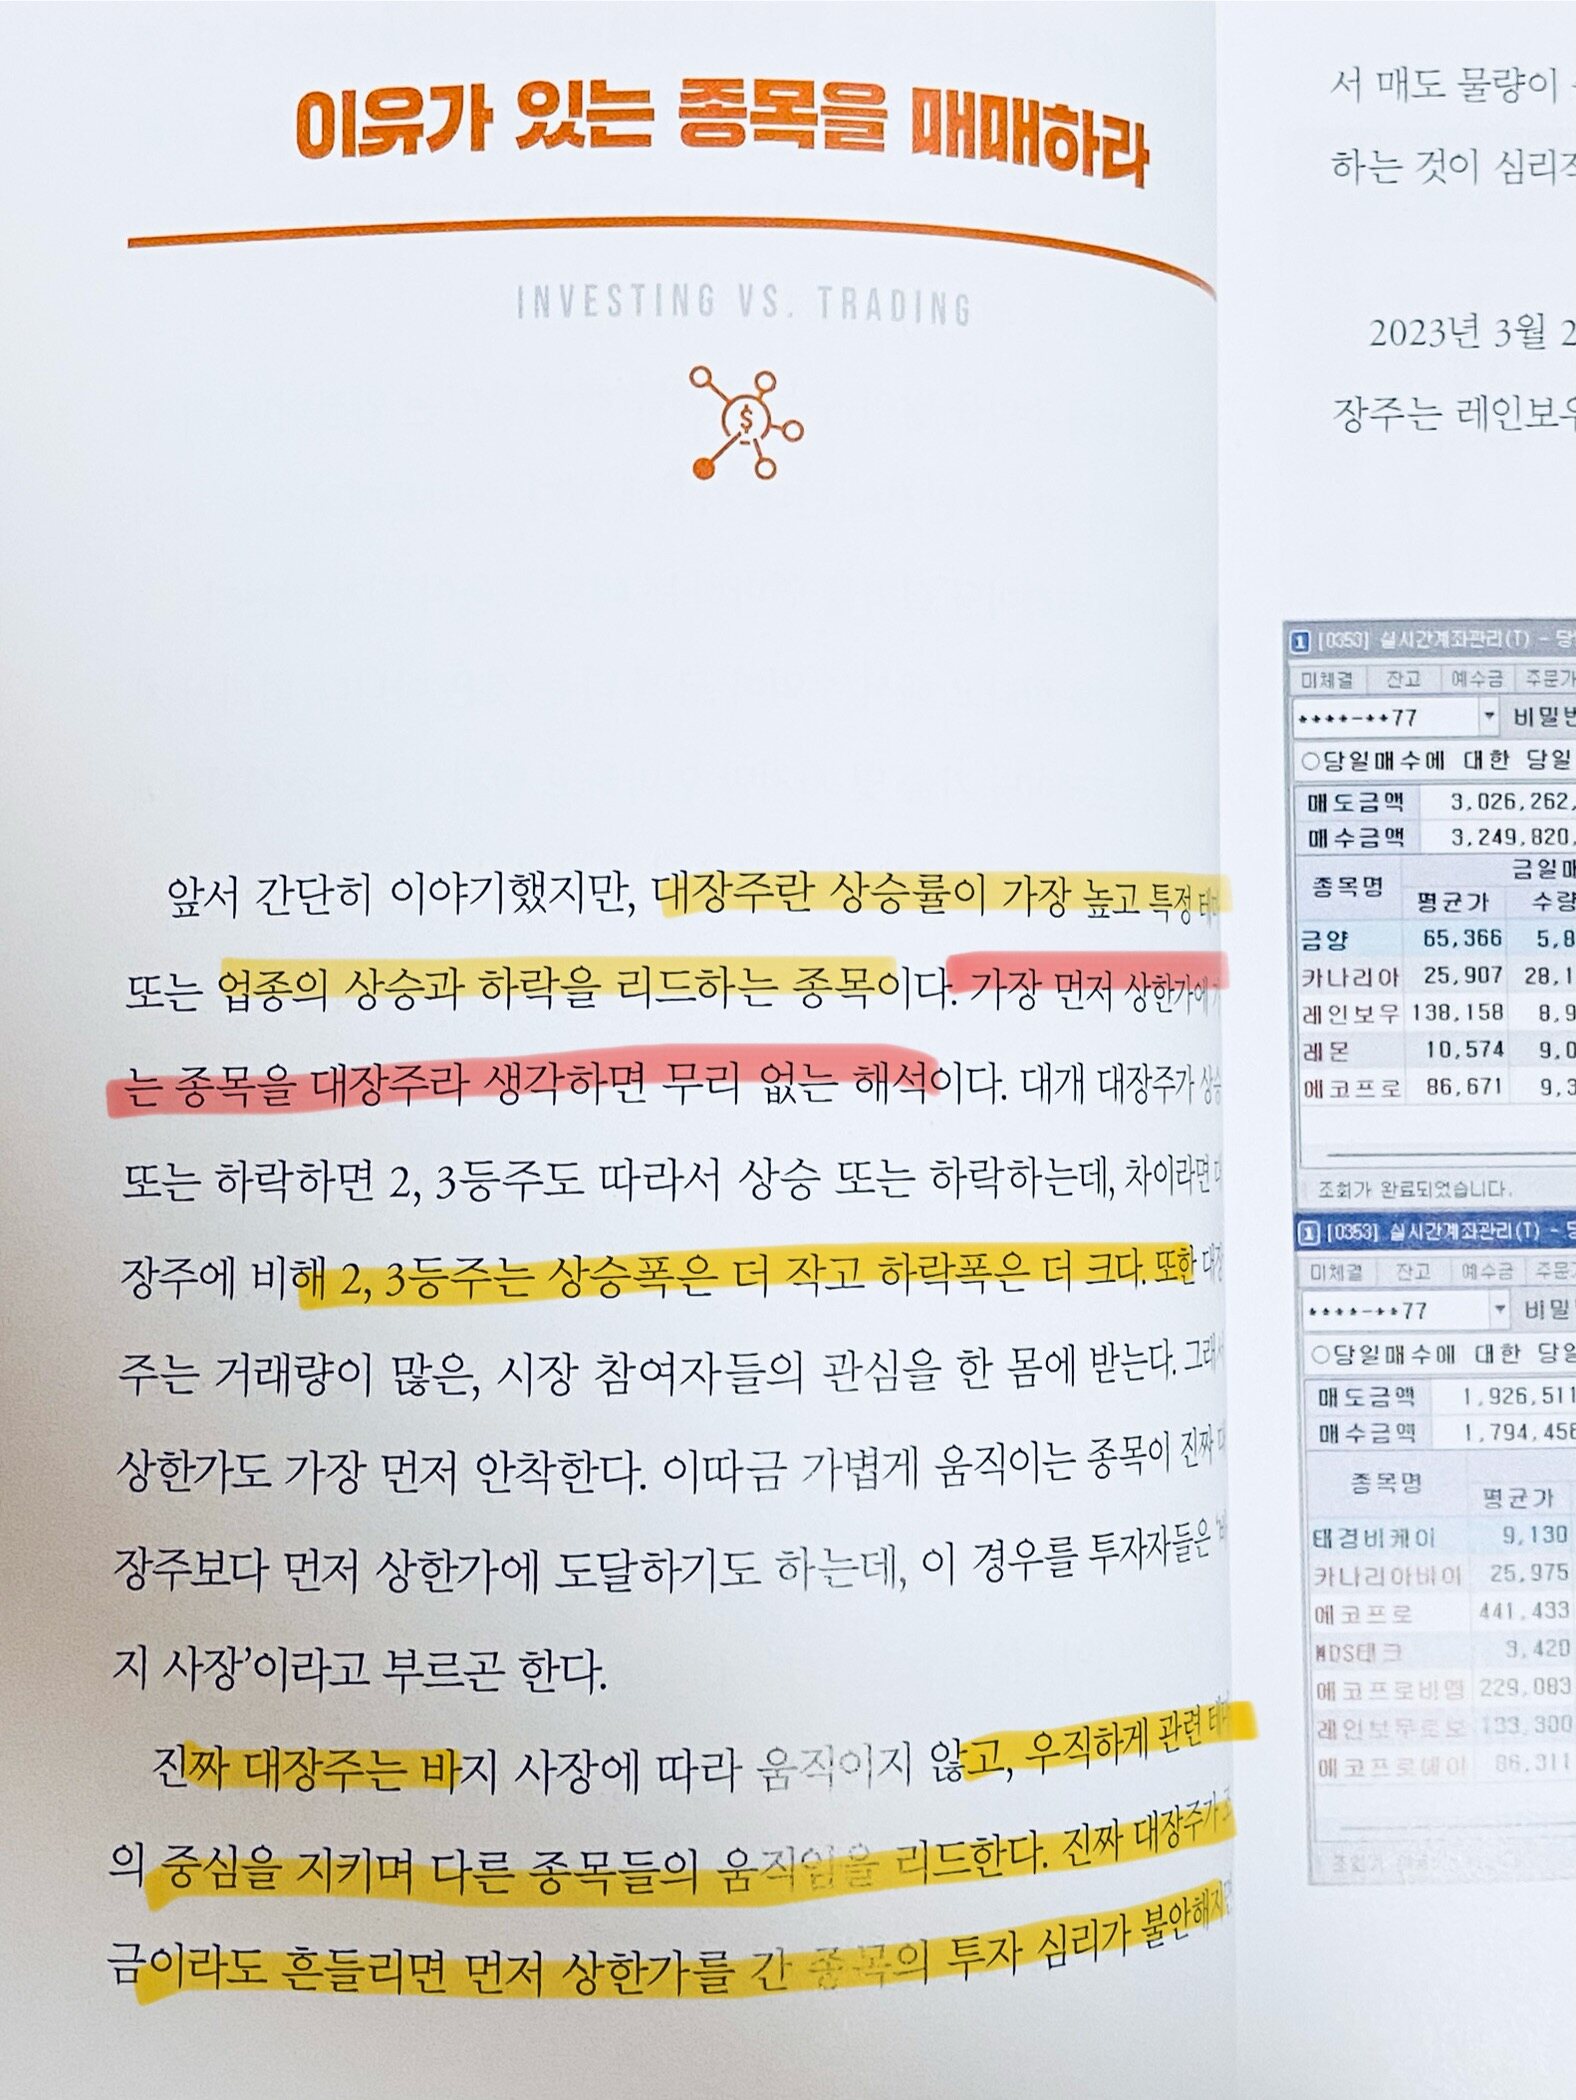 이유가 있는 종목을 매매하라
INVESTING VS. TRADING
$
앞서 간단히 이야기했지만, 대장주란 상승률이 가장 높고 특정
또는 업종의 상승과 하락을 리드하는 종목이다. 가장 먼저 상한가에
는 종목을 대장주라 생각하면 무리 없는 해석이다. 대개 대장주가
또는 하락하면 2, 3등주도 따라서 상승 또는 하락하는데, 차이라면
장주에 비해 2, 3등주는 상승폭은 더 작고 하락폭은 더 크다. 또한
주는 거래량이 많은, 시장 참여자들의 관심을 한 몸에 받는다.
상한가도 가장 먼저 안착한다. 이따금 가볍게 움직이는 종목이 진짜
장주보다 먼저 상한가에 도달하기도 하는데, 이 경우를 투자자들은
지 사장’이라고 부르곤 한다.
진짜 대장주는 바지 사장에 따라 움직이지 않고, 우직하게 관련
의 중심을 지키며 다른 종목들의 움직임을 리드한다. 진짜 대장주가
금이라도 흔들리면 먼저 상한가를 간 종목의 투자 심리가
서 매도 물량이
하는 것이
2023년 3월
장주는
1 [0353] 실시간계좌관리(T) -
미체결 잔고 예수금
****-**77
○당일매수에 대한 당일
매도금액 3,026,262,
매수금액 3,249,820,
종목명
평균가
금양 65,366 5,8
카나리아 25,907 28,1
레인보우 138,158 8,9
레몬 10,574 9,0
에코프로 86,671 9,3
조회가 완료되었습니다.
1 [0353] 실시간계좌관리(T) -
미체결 잔고 예수금
****-**77 비밀
○당일매수에 대한 당일
매도금액 1,926,511
매수금액 1,794,456
종목명
평균가
태경비케이 9,130
카나리아바이 25,975
에코프로 441,433
MDS테크 3,420
에코프로비엠 229,083
레인보우로보 133,300
에코프로에이 86,311